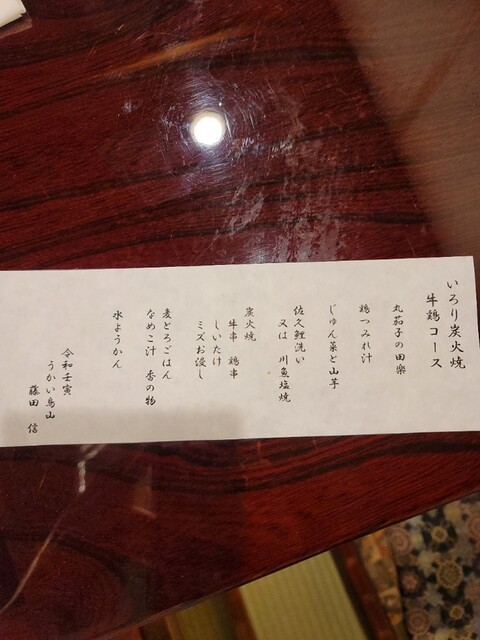 いろり炭火焼
牛鶏コース
丸茄子の田楽
鶏つみれ汁
じゅん菜と山芋
佐久鯉洗い
又は 川魚塩焼
炭火焼
牛串 鶏串
しいたけ
ミズお浸し
麦とろごはん
なめこ汁 香の物
水ようかん
令和壬寅
うかい鳥山
藤田 信